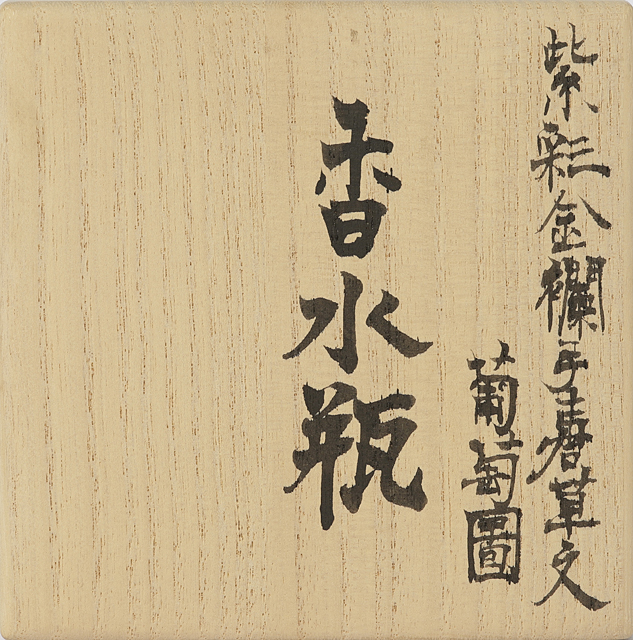 紫彩金襴手唐草文
葡萄圖
香水瓶